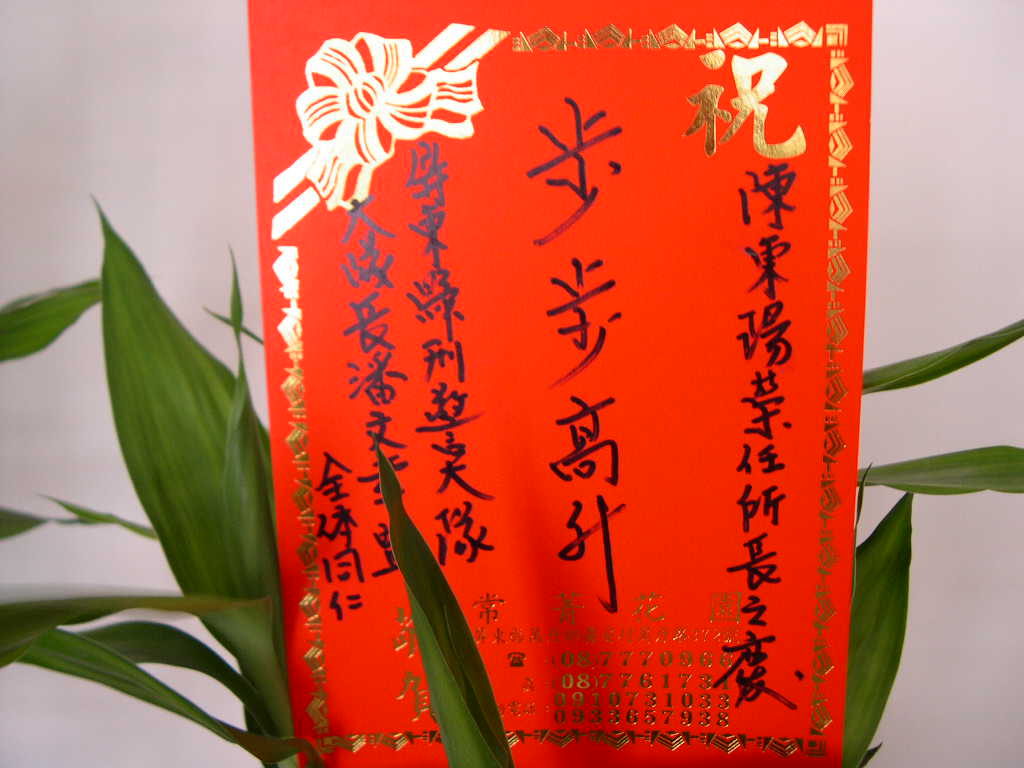 祝
陳東陽榮任所長之慶
步步高升
屏東縣刑警大隊
大隊長潘文
全体同仁
賀
常菁花園
(08)7770966
0910731033
0933657938